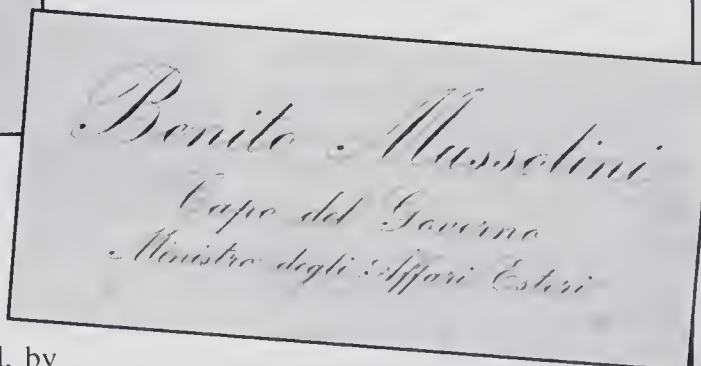 Benito Mussolini
Capo del Governo
Ministro degli Affari Esteri
by